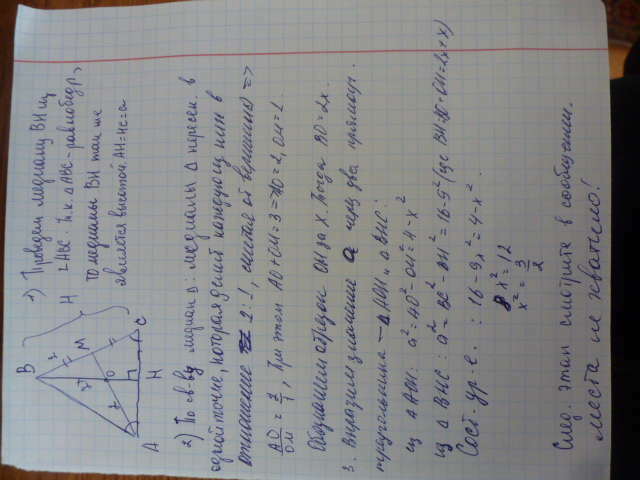 1) Проведем медиану BH из
∠ABC. Т.к. △ABC - равнобедр.,
то медиана BH также
является высотой. AH=HC=a
B
M
O
A
H
C
2) По св-ву медиан △: медианы △ пересек. в
одной точке, которая делит каждую из них в
отношение 2:1, считая от вершины =>
AO/OM = 2/1, При этом AO+OM=3 => AO=2, OM=1.
Обозначаем отрезок OH за x. Тогда BO=2x.
3. Выразим значение a через два прямоуг.
треугольника - △AOH и △BHC:
из △AOH: a²=AO²-OH²=4-x²
из △BHC: a²=BC²-BH²=16-9x² (где BH=BO+OH=2x+x)
Сост. ур-е.: 16-9x²=4-x²
8x²=12
x²=3/2
След. этап смотрите в сообщении.
места не хватило!